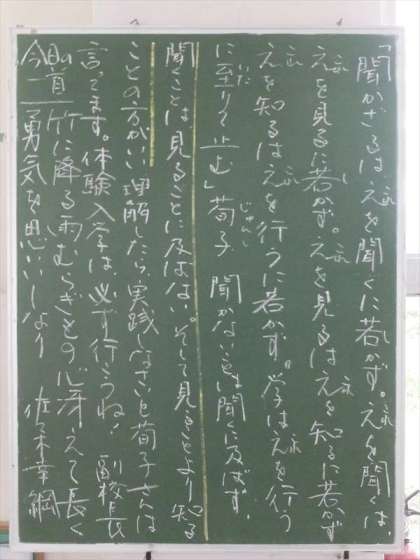 「聞かざるは之を聞くに若かず。之を聞くは、
之を見るに若かず。之を見るは之を知るに若かず
之を知るは之を行うに若かず。学は之を行う
に至りて止む」荀子 聞かないことは聞くに及ばず、
聞くことは見ることに及ばない。そして見ることより知る
ことの方がいい理解したら、実践しなさいと荀子さんは
言ってます。体験入学は、必ず行こうね! 副校長
今日の一首 竹に降る雨むらぎもの心冴えて長く
勇気を思いいしなり 佐々木幸綱